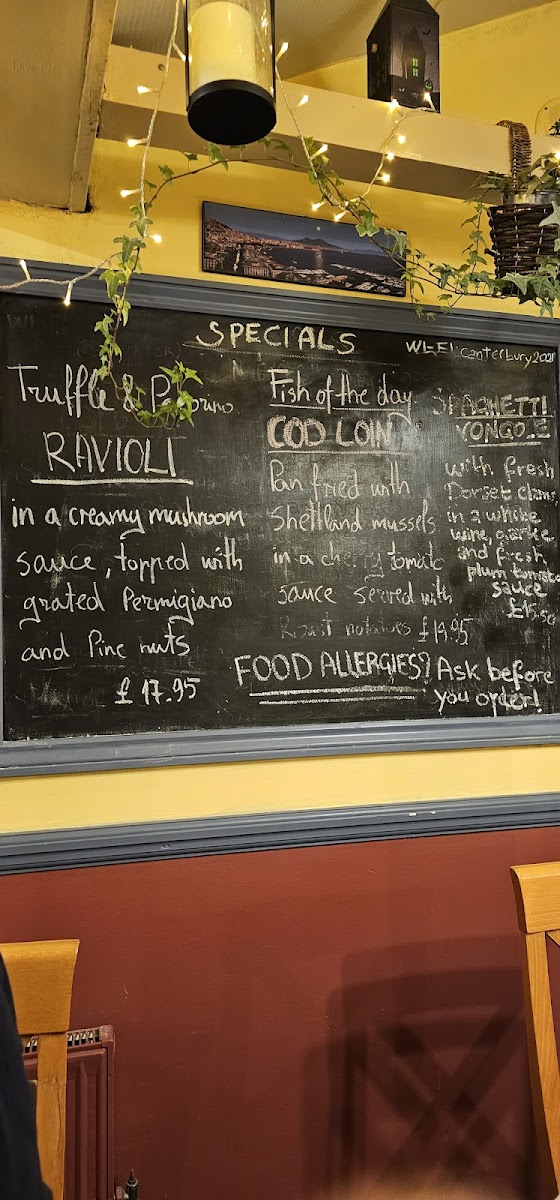 SPECIALS
WI-FI: Canterbury2021
Truffle &
RAVIOLI
in a creamy mushroom
sauce, topped with
grated Permigiano
and Pine nuts
£ 17.95
Fish of the day
COD LOIN
Pan fried with
Shetland mussels
in a cherry tomato
sauce served with
Roast potatoes £19.95
SPAGHETTI
VONGOLE
with fresh
Dorset Clams
in a white
wine, garlic
and fresh
plum tomato
sauce
£15.50
FOOD ALLERGIES? Ask before
you order!